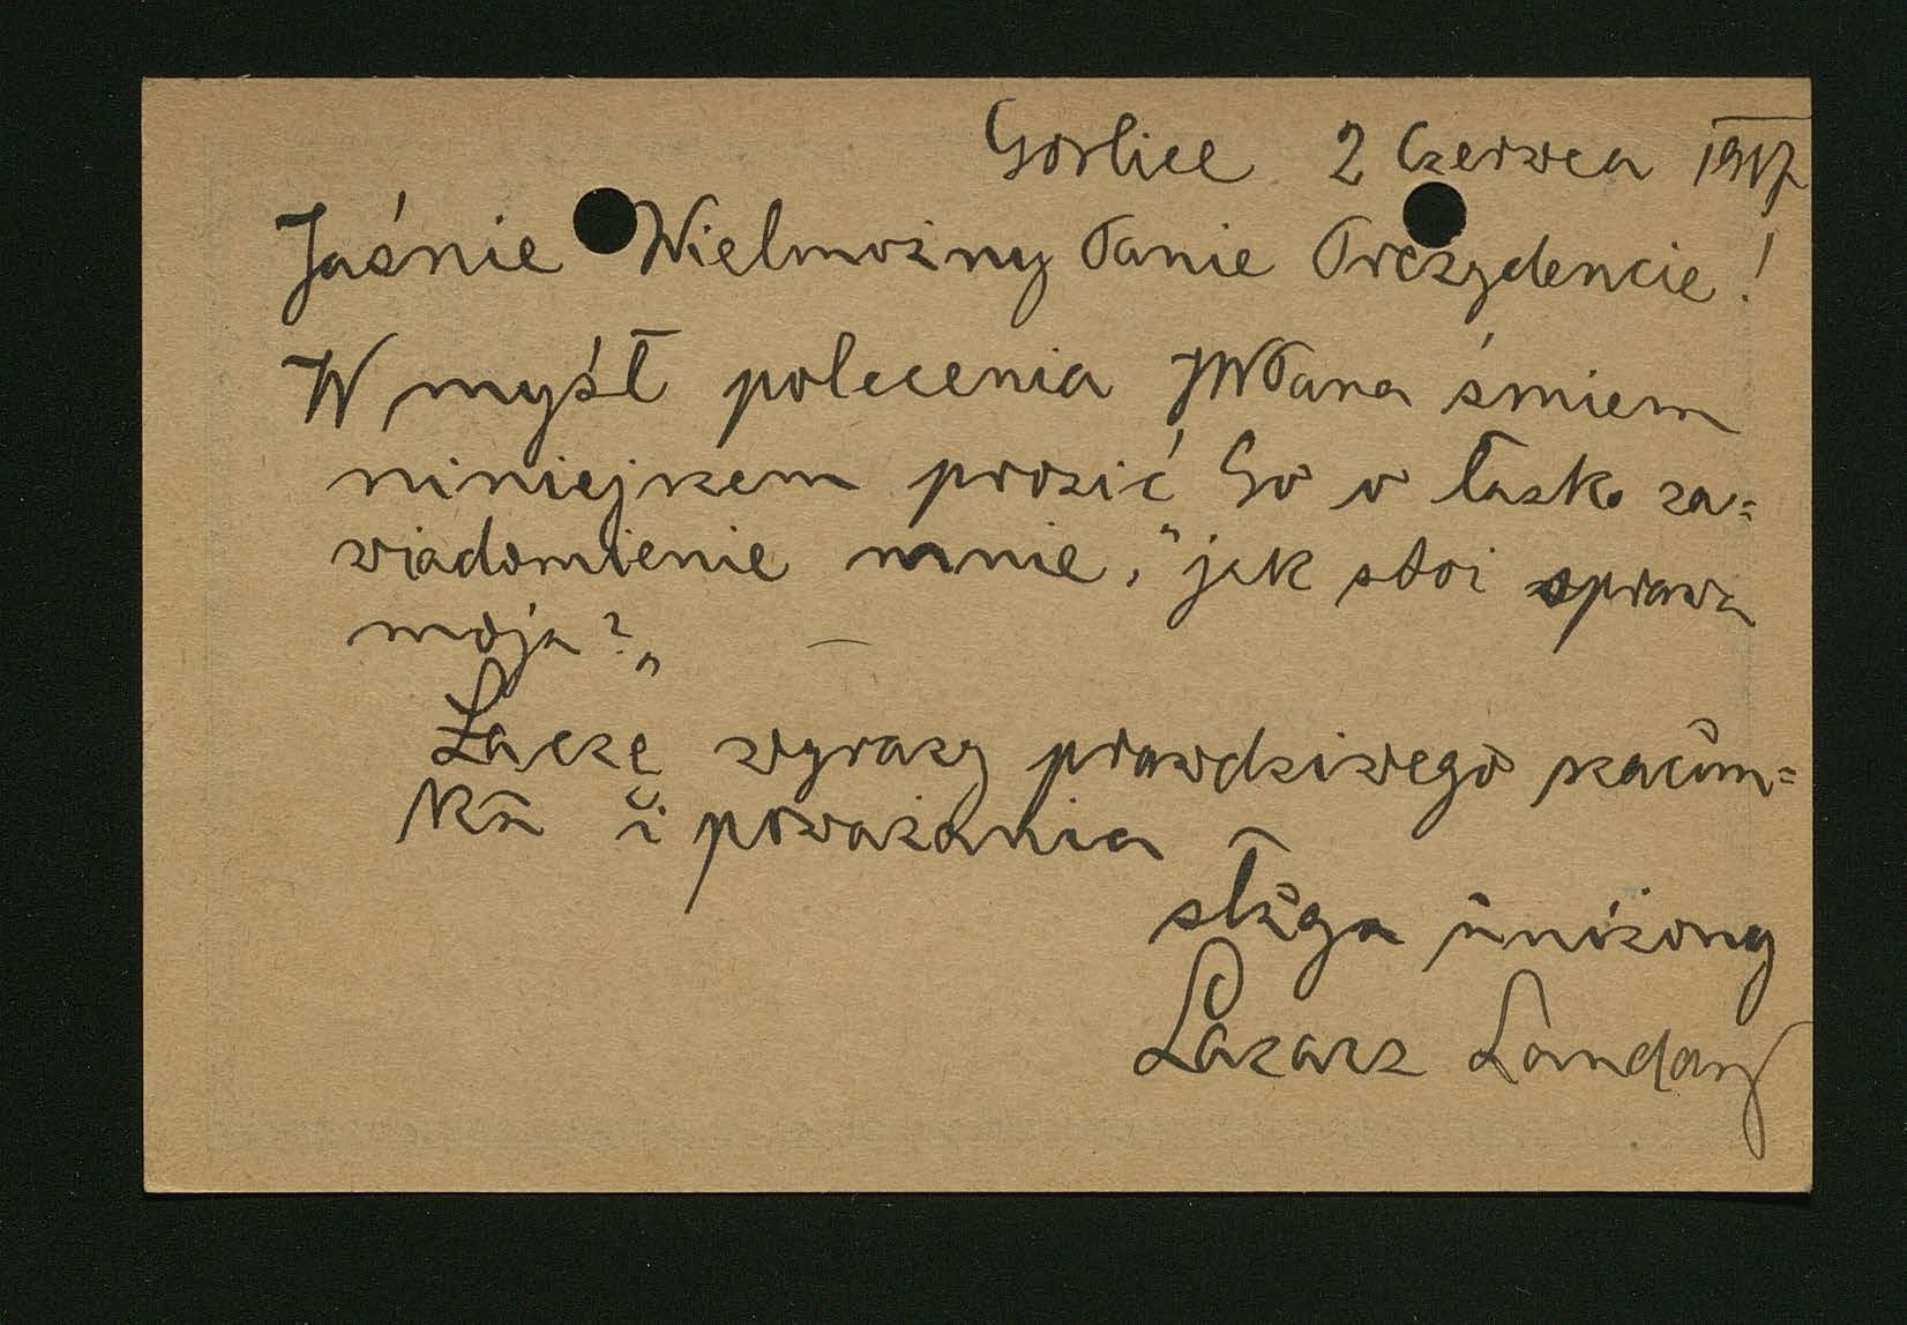 Gorlice 2 Czerwca 1917
Jaśnie Wielmożny Panie Prezydencie!
W myśł polecenia JWPana śmiem
niniejszem prosić Go o łask. za=
wiadomienie mnie, "jak stoi sprawa
moja?"
Łączę wyrazy prawdziwego szacun=
ku i poważania
sługa uniżony
Łazarz Landau